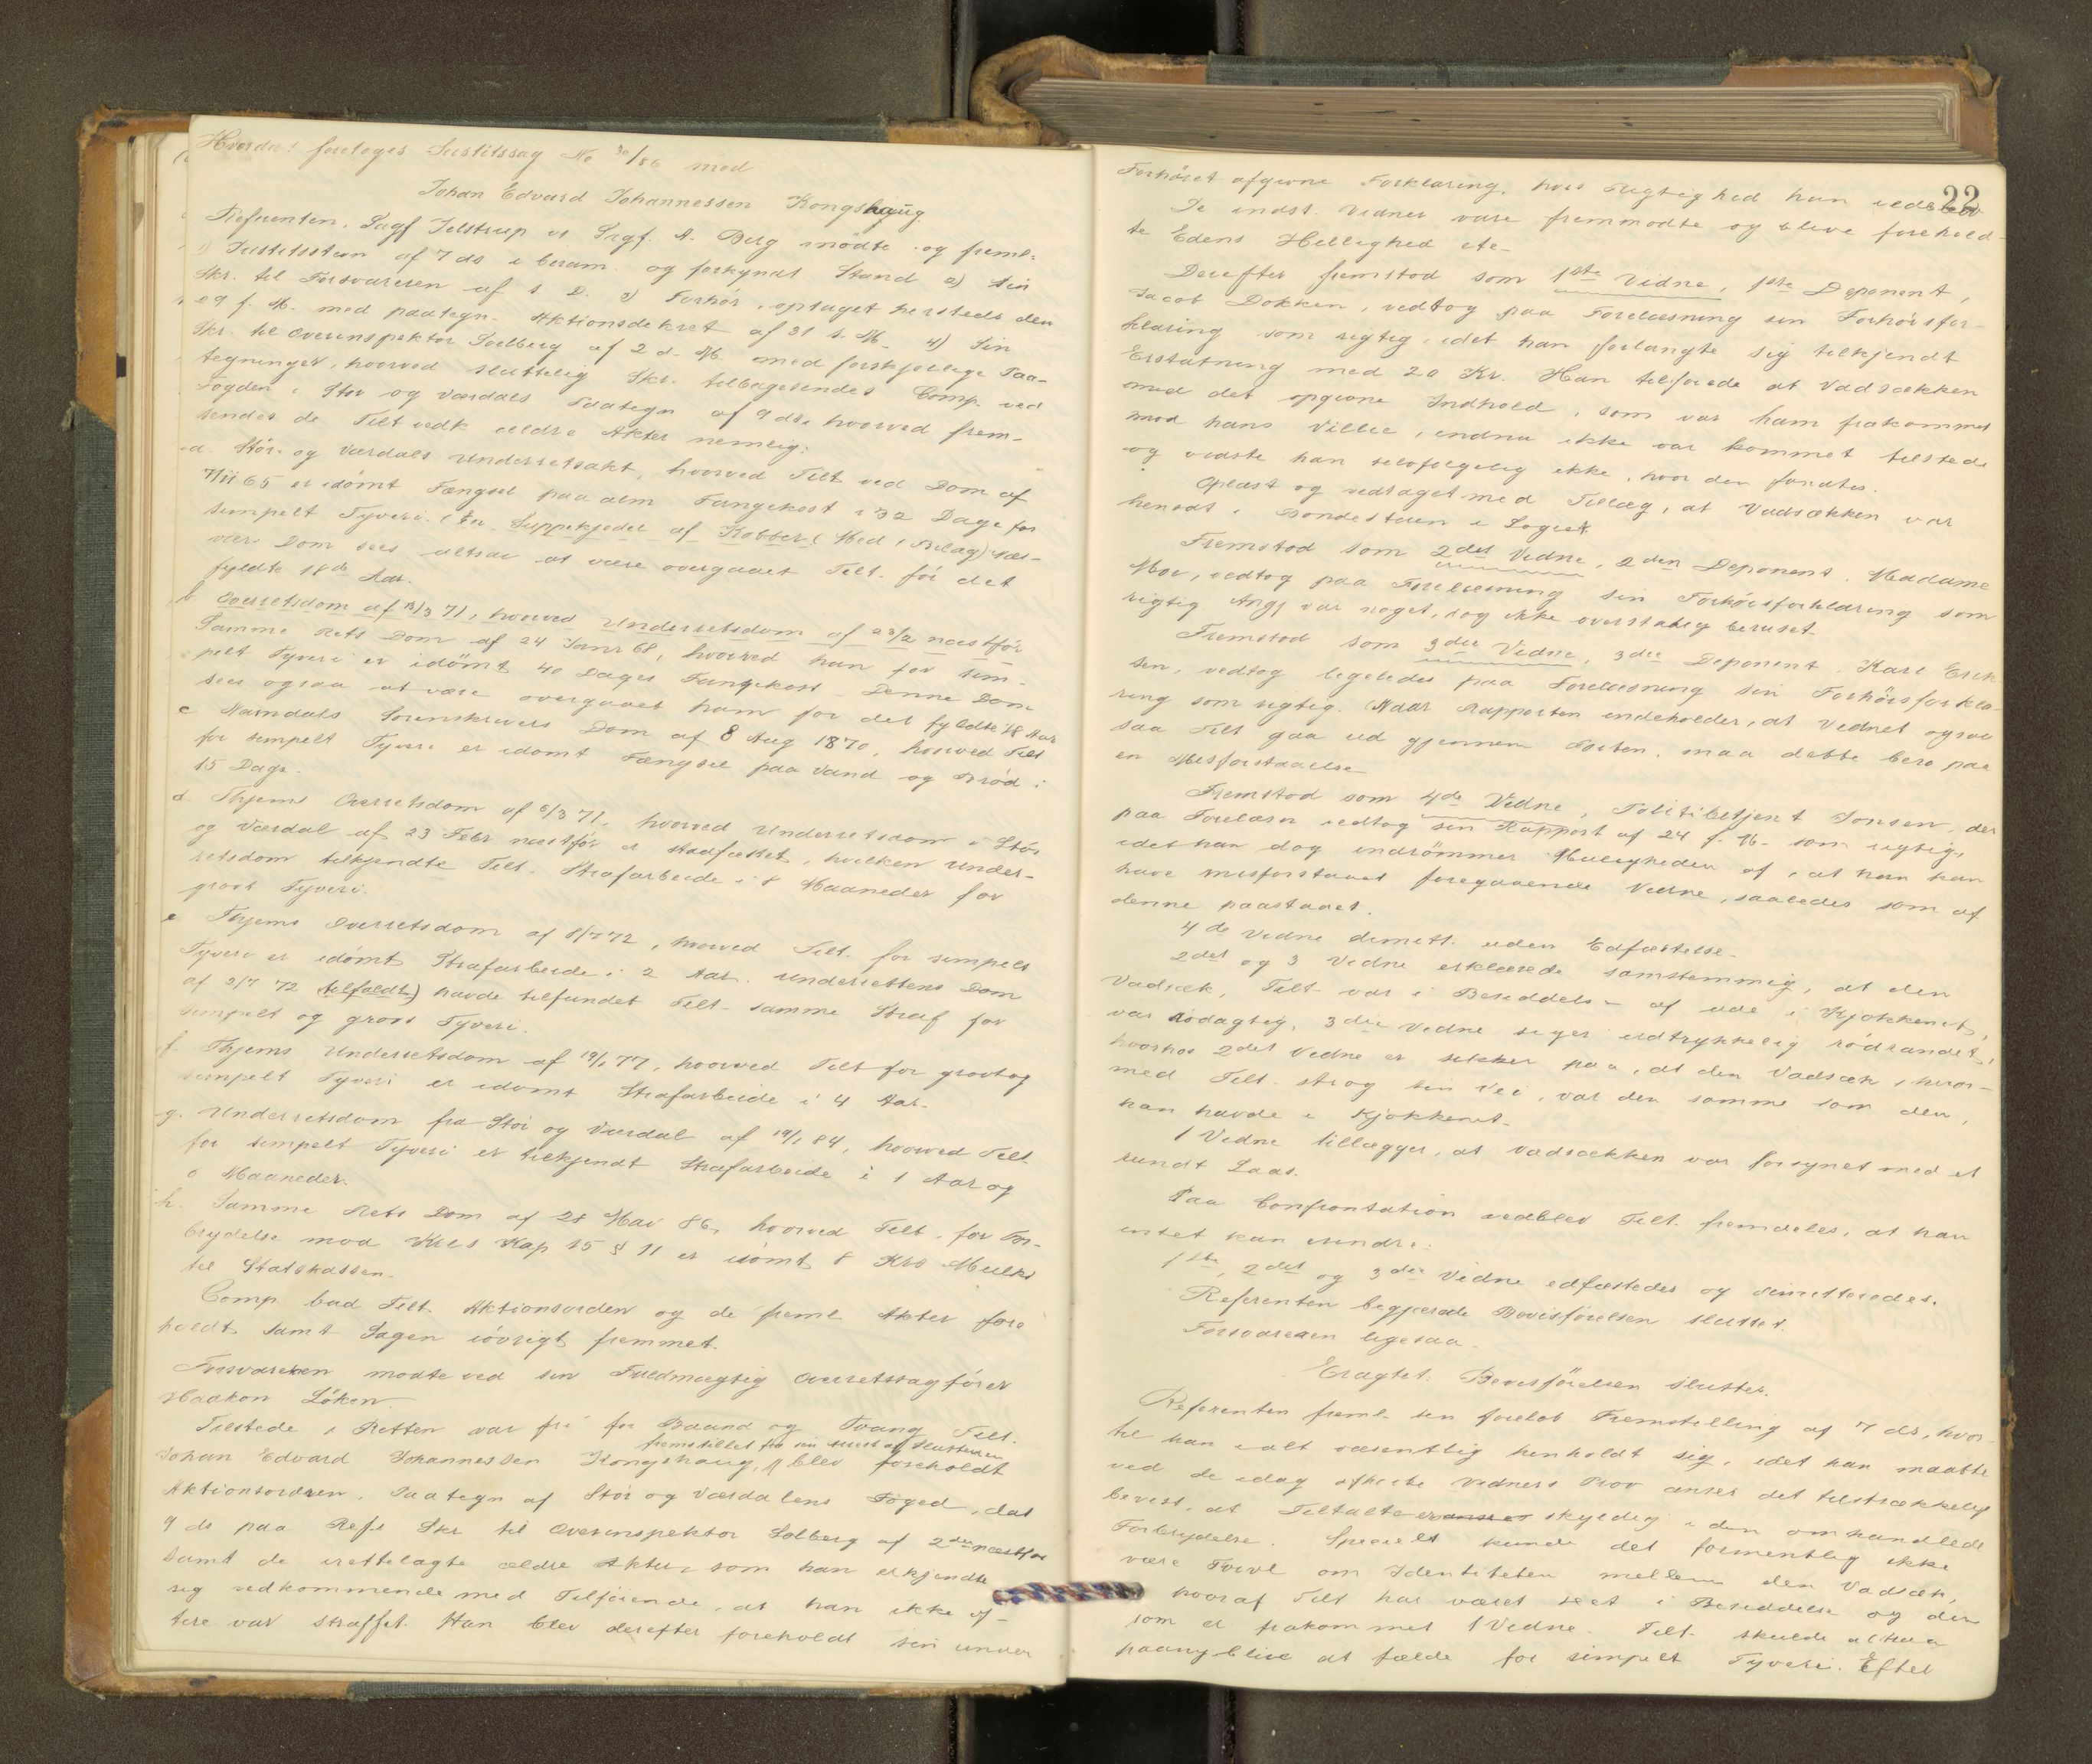 Hvorda: foretoges Justitssag No 30/86 mod
Johan Edvard Johannessen Kongshaug
Referenten, Sagf Jelstrup v. Sagf. A. Berg mødte og freml:
1) Justitsstevn. af 7 ds i beram. og forkyndt Stand 2) sin
Skr. til Forsvareren af s. D. 3) Forhør, optaget hersteds den
29 f. M. med paategn. Aktionsdekret af 31 s. M. 4) Sin
Skr. til Overinspektør Solberg af 2 d. M. med forskjellige Paa-
tegninger, hvorved sluttelig Skr. tilbagesendes Comp. ved
Fogden i Stør og Værdals Paategn af 9 ds, hvorved frem-
sendes de Tilt vedk ældre Akter nemlig:
a. Stør- og Værdals Underretsakt, hvorved Tilt ved Dom af
7/11 65 er idømt Fængsel paa alm Fangekost i 32 Dage for
simpelt Tyveri. (En Suppekjedel af Kobber (Med 1 Bilag) Nær-
værd Dom sees altsaa at være overgaaet Tilt. før det
fyldte 18de Aar.
b Overretsdom af 13/3 71, hvorved Underretsdom af 23/2 næstfør
Samme Rets Dom af 24 Janr 68, hvorved han for sim-
pelt Tyveri er idømt 40 Dages Fangekost. Denne Dom
sees ogsaa at være overgaaet ham for det fyldte 18 Aar
c Namdals Sorenskrivers Dom af 8 Aug 1870, hvorved Tilt
for simpelt Tyveri er idømt Fængsel paa Vand og Brød i
15 Dage.
d. Thjems Overretsdom af 6/3 71, hvorved Underretsdom i Stør
og Værdal af 23 Febr næstfør er stadfæstet, hvilken Under-
retsdom tilkjendte Tilt. Strafarbeide i 8 Maaneder for
grovt Tyveri.
e Thjems Overretsdom af 8/7 72, hvorved Tilt. for simpelt
Tyveri er idømt Strafarbeide i 2 Aar. Underrettens Dom
af 2/7 72 (tilfaldt) havde tilfundet Tilt. samme Straf for
simpelt og grovt Tyveri.
f. Thjems Underretsdom af 19/1 77, hvorved Tilt for grovt og
simpelt Tyveri er idømt Strafarbeide i 4 Aar.
g. Underretsdom fra Stør og Værdal af 19/1 84, hvorved Tilt
for simpelt Tyveri er tilkjendt Strafarbeide i 1 Aar og
Maaneder.
h. Samme Rets Dom af 28 Mai 86, hvorved Tilt. for For-
brydelse mod Kap 15 § 11 er idømt 8 Krs Mulkt
til Statskassen.
Comp. bad Tilt. Aktionsorden og de freml Akter fore
holdt samt Sagen iøvrigt fremmet.
Forsvareren mødte ved sin Fuldmægtig Overretssagfører
Haakon Löken.
Tilstede i Retten var fri for Baand og Tvang Tilt.
fremstillet fra sin Arrest af Slutteren
Johan Edvard Johannessen Kongshaug, blev foreholdt
Aktionsordren, Paategn af Stør og Værdalens Foged, dat
9 ds paa Refs Skr til Overinspektør Solberg af 2den næstfør
samt de irettelagte ældre Akter, som han erkjendte
sig vedkommende med Tilføiende, at han ikke of-
tere var straffet. Han blev derefter foreholdt sin under
22
Forhøret afgivne Forklaring, hvis Rigtighed han vedblev
De indst. Vidner vare fremmødte og bleve forehold-
te Edens Hellighed etc.
Derefter fremstod som 1ste Vidne, 1ste Deponent,
Jacob Dokken, vedtog paa Forelæsning sin Forhørsfor-
klaring som rigtig, idet han forlangte sig tilkjendt
Erstatning med 20 Kr. Han tilføiede at Vadsækken
med det opgivne Indhold, som var ham frakommet
mod hans Villie, endnu ikke var kommet tilstede
og vidste han selvfølgelig ikke, hvor den fandtes.
Oplæst og vedtaget med Tillæg, at Vadsækken var
hensat i Bondestuen i Logiet.
Fremstod som 2det Vidne, 2den Deponent. Madame
Moe, vedtog paa Forelæsning sin Forhørsforklaring som
rigtig Ang, var noget, dog ikke overstadig beruset.
Fremstod som 3die Vidne, 3die Deponent, Kari Erik
sen, vedtog ligeledes paa Forelæsning sin Forhørsforkla-
ring som rigtig. Naar Rapporten indeholder, at Vidnet ogsaa
saa Tilt gaa ud gjennem Porten, maa dette bero paa
en Misforstaaelse
Fremstod som 4de Vidne, Politibetjent Jonsen, der
paa Forelæsn vedtog sin Rapport af 24 f. M. som rigtig,
idet han dog indrømmer Muligheden af, at han kan
have misforstaaet foregaaende Vidne, saaledes som af
denne paastaaet.
4de Vidne demitt. uden Edfæstelse.
2det og 3 Vidne erklærede samstemmig, at den
Vadsæk, Tilt. var i Besiddelse af ude i Kjøkkenet,
var rødagtig, 3die Vidne siger udtrykkelig rødrandet,
hvorhos 2det Vidne er sikker paa, at den Vadsæk, hvor-
med Tilt. strøg sin Vei, var den samme som den,
han havde i Kjøkkenet.
1 Vidne tillægger, at Vadsækken var forsynet med et
rundt Laas.
Paa Confrontation vedblev Tilt. fremdeles, at han
intet kan erindre.
1ste, 2det og 3die Vidne edfæstedes og dimitteredes.
Referenten begjærede Bevisførelsen sluttet.
Forsvareren ligesaa.
Eragtet: Bevisførelsen sluttes.
Referenten freml. sin foreløb Fremstilling af 7 ds, hvor-
til han i alt væsentlig henholdt sig, idet han maatte
ved de idag afhørte Vidners Prov anser det tilstrækkelig
bevist, at Tiltalte er skyldig i den omhandlede
Forbrydelse. Specielt kunde det formentlig ikke
være Tvivl om Identiteten mellem den Vadsæk,
hvoraf Tilt har været seet i Besiddelse og den
som er frakommet 1 Vidne. Tilt. skulde altsaa
paany blive at fælde for simpelt Tyveri. Efter